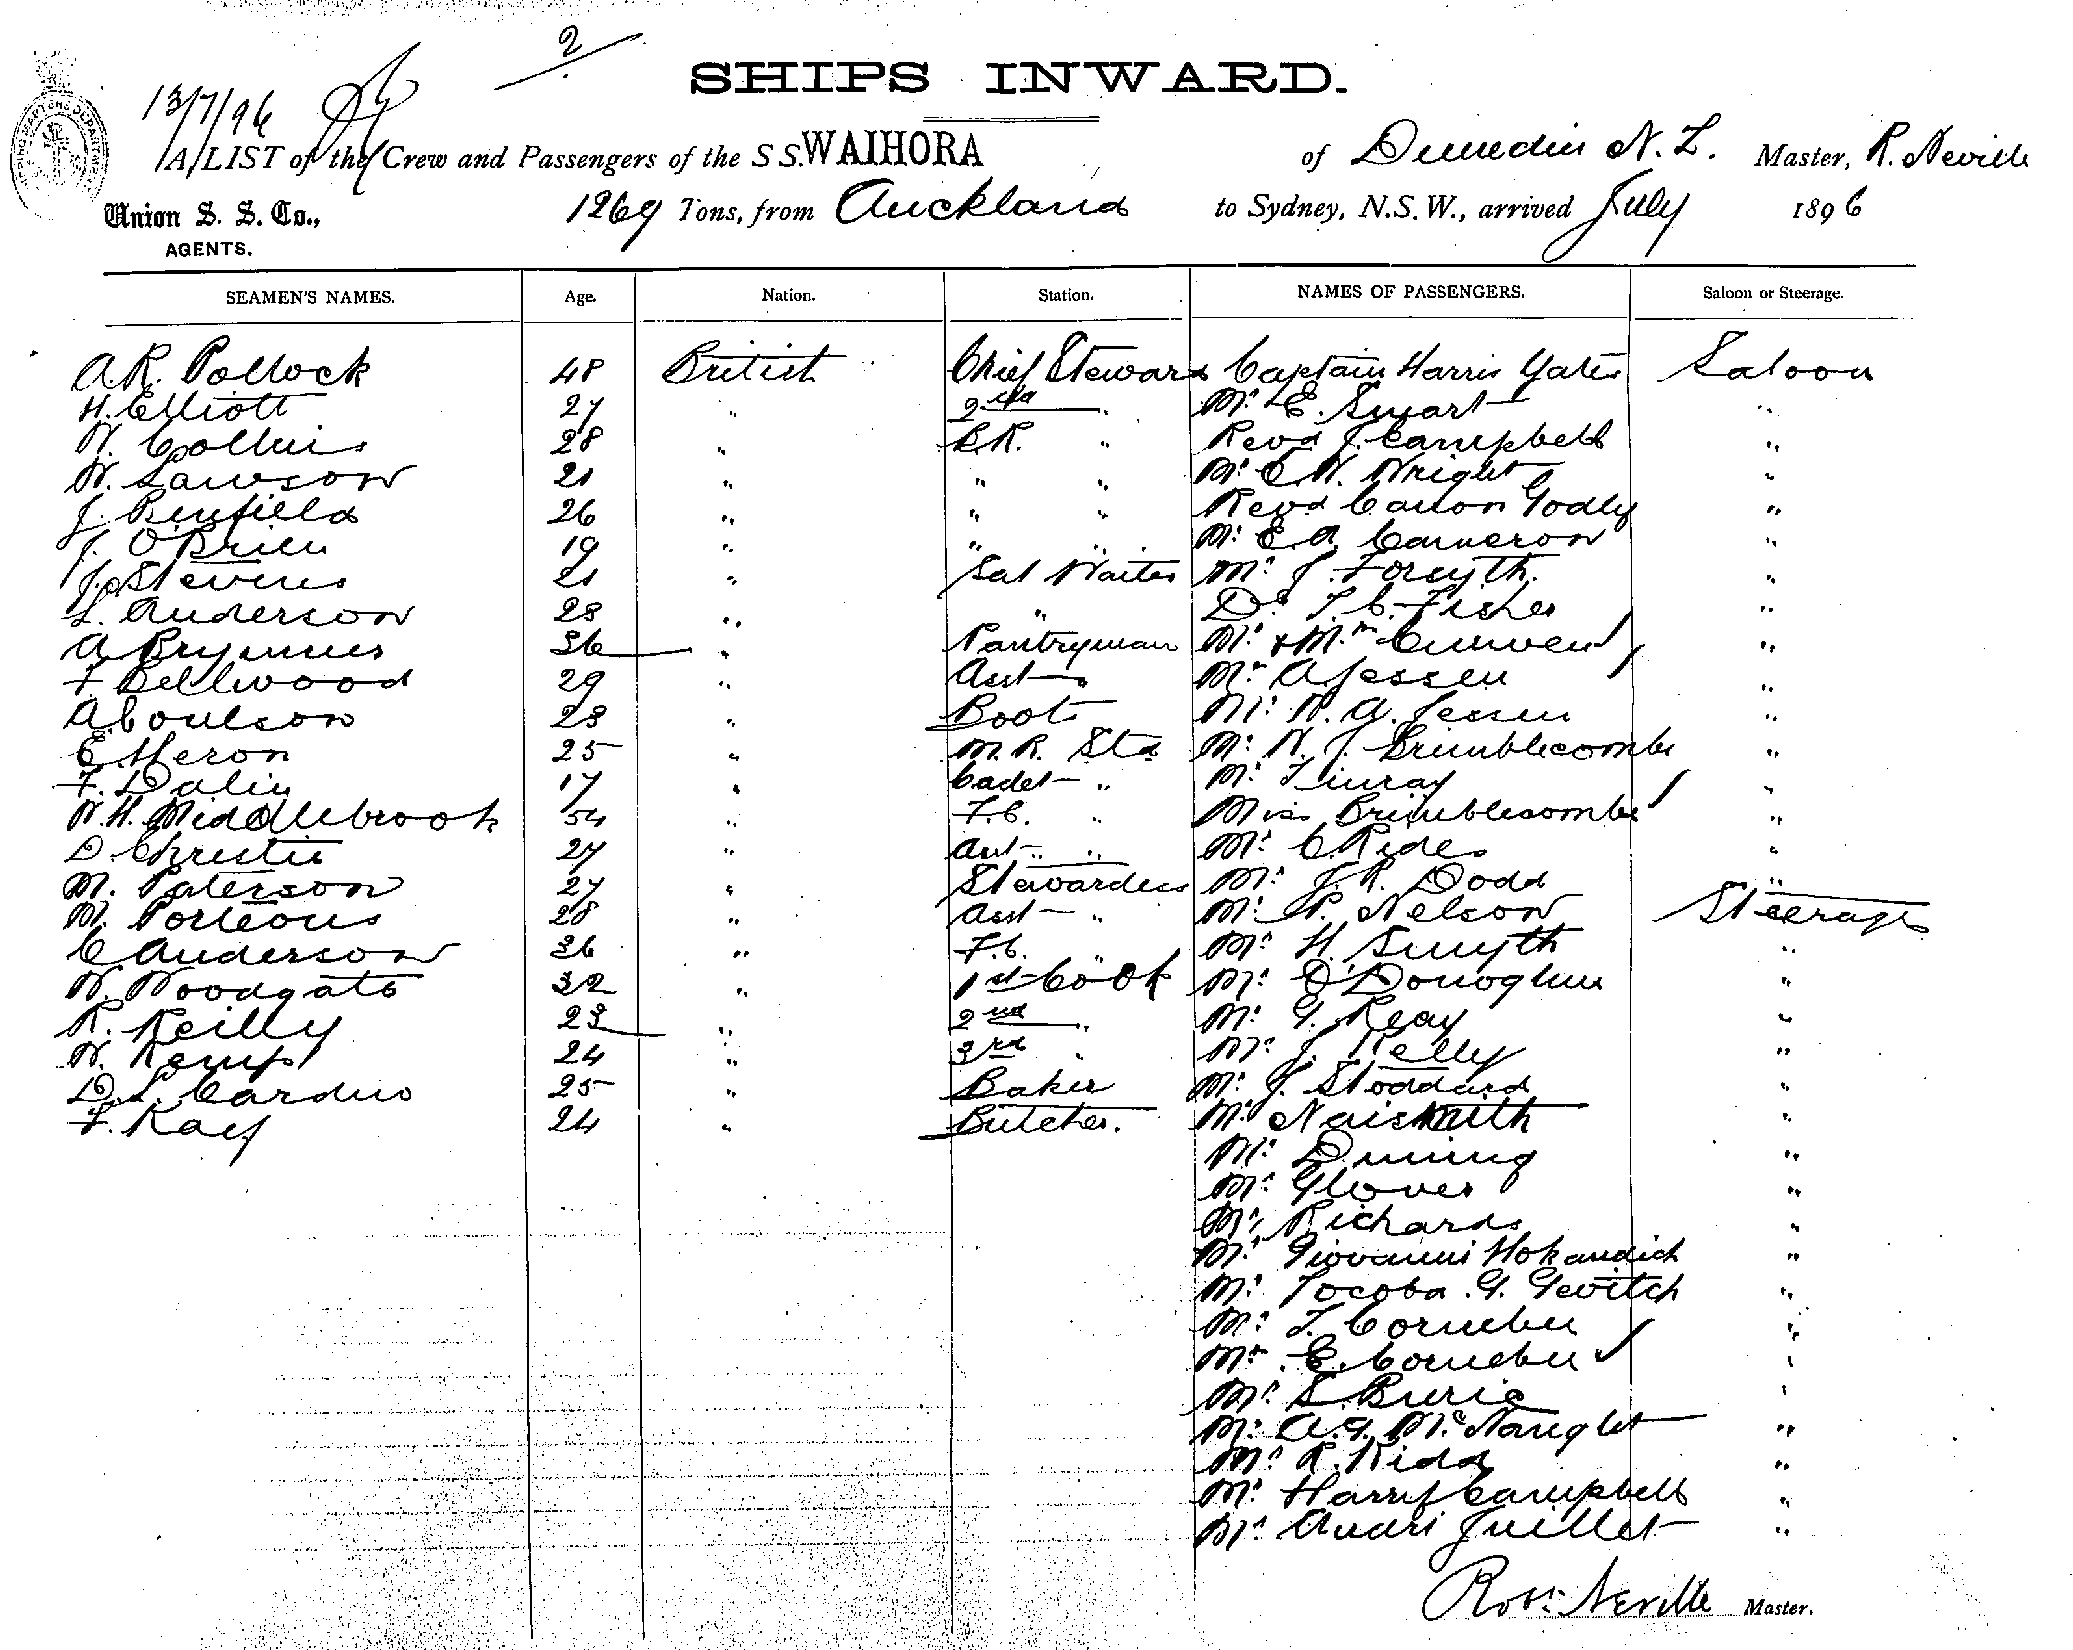 2
SHIPS INWARD.
13/7/96
A LIST of the Crew and Passengers of the S S. WAIHORA of Dunedin N. Z. Master, R. Neville
Union S. S. Co., 1269 Tons, from Auckland to Sydney, N.S.W., arrived July 1896
AGENTS.
SEAMEN'S NAMES. Age. Nation. Station. NAMES OF PASSENGERS. Saloon or Steerage.
A.R. Pollock 48 British Chief Steward Captain Harris Yates Saloon
H. Elliott 27 " 2nd " Mr E. Swart "
W. Collins 28 " B.R. " Revd J. Campbell "
W. Lawson 21 " " " Mr C. W. Wright "
J. Benfield 26 " " " Revd Canon Godly "
J. O'Brien 19 " " " Mr E. A. Cameron "
J. Stevens 21 " Sal Waiter Mr J. Forsyth. "
L. Anderson 28 " " Dr T. C. Fisher "
A 36 " Pantryman Mr & Mrs Curwen "
F Bellwood 29 " Asst " Mrs A Jessen "
A Coulson 23 " Boots Mr W. A. Jessen "
E. Heron 25 " M.R. Std Mr W. J. Brimblecombe "
F. 17 " Cadet " Mr "
W. H. Middlebrook 54 " F.C. " Miss Brimblecombe "
D. Christie 27 " Asst " " Mr C. "
M. Paterson 27 " Stewardess Mr J. R. Dodd "
M. Porteous 28 " Asst " Mr P. Nelson Steerage
C Anderson 36 " F.C. " Mr H. Smyth "
W. Woodgate 32 " 1st Cook Mr O'Donoghue "
R. Reilly 23 " 2nd " Mr G. Reay "
W. Kemp 24 " 3rd " Mr J. Kelly "
D. L. Carduo 25 " Baker Mr J. Stoddard "
F. Kay 24 " Butcher. Mr Naismith "
Mr Dining "
Mr Glover "
Mr Richards "
Mr Giovanni "
Mr G. Gevitch "
Mr T. "
Mrs E. "
Mr S. "
Mr A. G. McNaught "
Mr R. Kidd "
Mr Harry Campbell "
Mr Andri Juillet "
Robt Neville Master.